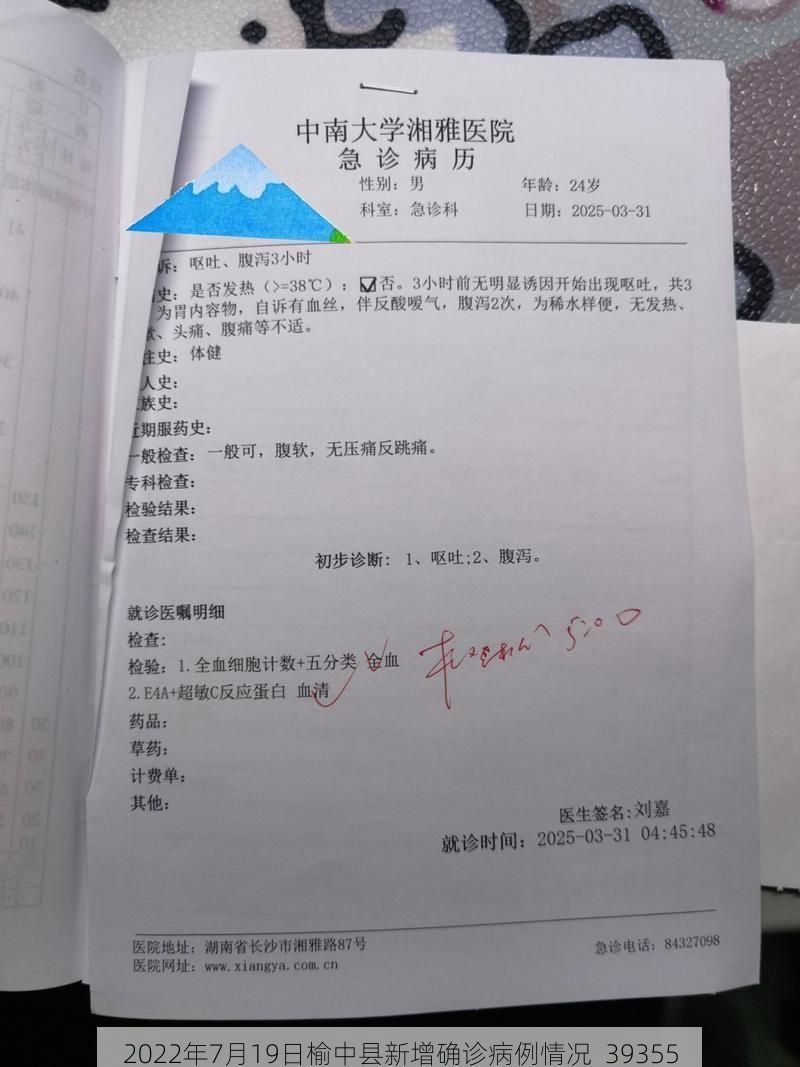 中南大学湘雅医院
急诊病历
性别：男 年龄：24岁
科室：急诊科 日期：2025-03-31
诉：呕吐、腹泻3小时
史：是否发热（>=38℃）：☑否。3小时前无明显诱因开始出现呕吐，共3
为胃内容物，自诉有血丝，伴反酸嗳气，腹泻2次，为稀水样便，无发热、
、头痛、腹痛等不适。
往史：体健
人史：
族史：
近期服药史：
一般检查：一般可，腹软，无压痛反跳痛。
专科检查：
检验结果：
检查结果：
初步诊断： 1、呕吐;2、腹泻。
就诊医嘱明细
检查：
检验：1.全血细胞计数+五分类 全血
2.E4A+超敏C反应蛋白 血清
5:00
药品：
草药：
计费单：
其他：
医生签名:刘嘉
就诊时间：2025-03-31 04:45:48
医院地址：湖南省长沙市湘雅路87号 急诊电话：84327098
医院网址：www.xiangya.com.cn
2022年7月19日榆中县新增确诊病例情况 39355